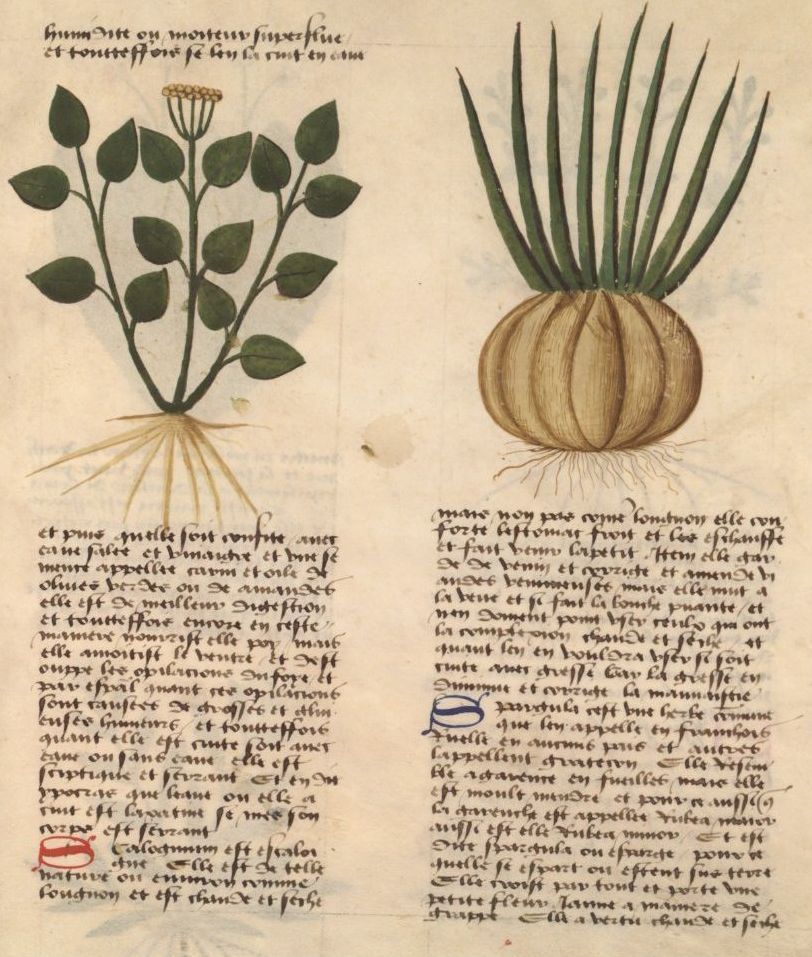 humidite ou moiteur superflue
et touttesfois se len la cuit en eaue
et puis quelle soit confite avec
eaue salee et vinaigre et une se
mence appellee carui et oile de
olives verdes ou de amandes
elle est de meilleur digestion
et touttesfois encore en ceste
maniere nourrist elle poy mais
elle amoitist le ventre et dest
ouppe les opilacions du foye et
par espal quant ces opilacions
sont causees de grosses et glui
euses humeurs et touttesfois
quant elle est cuite soit avec
eaue ou sans eaue elle est
stiptique et servant Et en dit
ypocras que leaue ou elle a
cuit est laxative se mes son
corps est servant
Scalognium est escaloi
gne Elle est de telle
nature ou environ comme
lougnon et est chaude et seche
mais non pas come lougnon elle con
forte lestomac froit et les eschauffe
et fait venir lapetit Item elle gar
de de venin et corrige et amende vi
andes venimeuses mais elle nuit a
la veue et si fait la bouche puante et
nen doivent point user ceulx qui ont
la complexion chaude et seche et
quant len en vouldra user si soit
cuite avec gresse car la gresse en
diminue et corrige la mauvaistie
Spargula cest une herbe comune
que len appelle en franchois
Ruelle en aucuns pais et autres
lappellent grateron Elle resem
ble agarence en fueilles mais elle
est moult mendre et pour ce aussi q
la garenche est appellee Rubea maior
aussi est elle Rubea minor Et est
dite spargula ou esparge pour ce
quelle se espart ou estent sus terre
Elle croist par tout et porte une
petite fleur Jaune a maniere de
grappe Elle a vertu chaude et seche